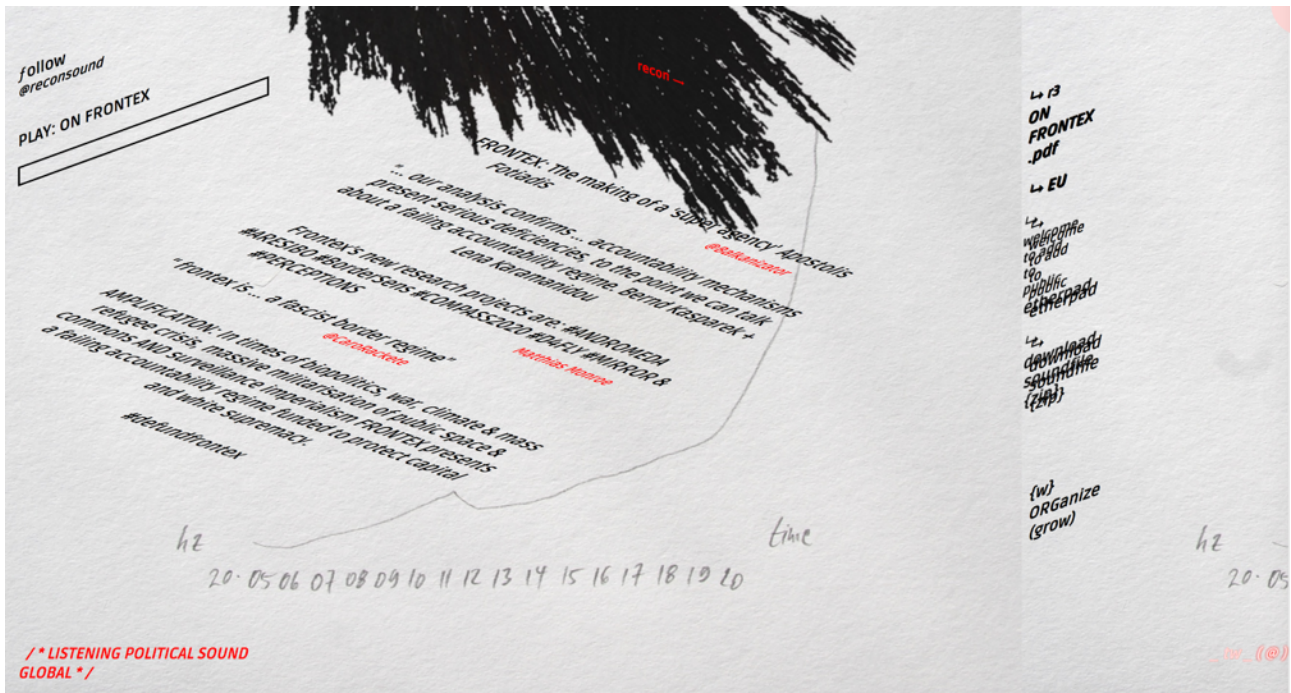 follow
@reconsound
PLAY: ON FRONTEX
recon →
FRONTEX: The making of a 'super agency' Apostolis
Fotiadis
@Balkanizator
"... our analysis confirms ... accountability mechanisms
present serious deficiencies, to the point we can talk
about a failing accountability regime. Bernd Kasparek +
Lena Karamanidou
Frontex's new research projects are: #ANDROMEDA
#ARESIBO #BorderSens #COMPASS2020 #D4FLY #MIRROR &
#PERCEPTIONS
Matthias Monroe
"frontex is ... a fascist border regime"
@CaroRackete
AMPLIFICATION: In times of biopolitics, war, climate & mass
refugee crisis, massive militarisation of public space &
commons AND surveillance imperialism FRONTEX presents
a failing accountability regime funded to protect capital
and white supremacy.
#defundfrontex
hz
time
20· 05 06 07 08 09 10 11 12 13 14 15 16 17 18 19 20
/ * LISTENING POLITICAL SOUND
GLOBAL * /
↳ r3
ON
FRONTEX
.pdf
↳ EU
↳
welcome
to add
to
public
etherpad
↳
download
soundfile
{zip}
{w}
ORGanize
(grow)
hz
20· 05
((@))